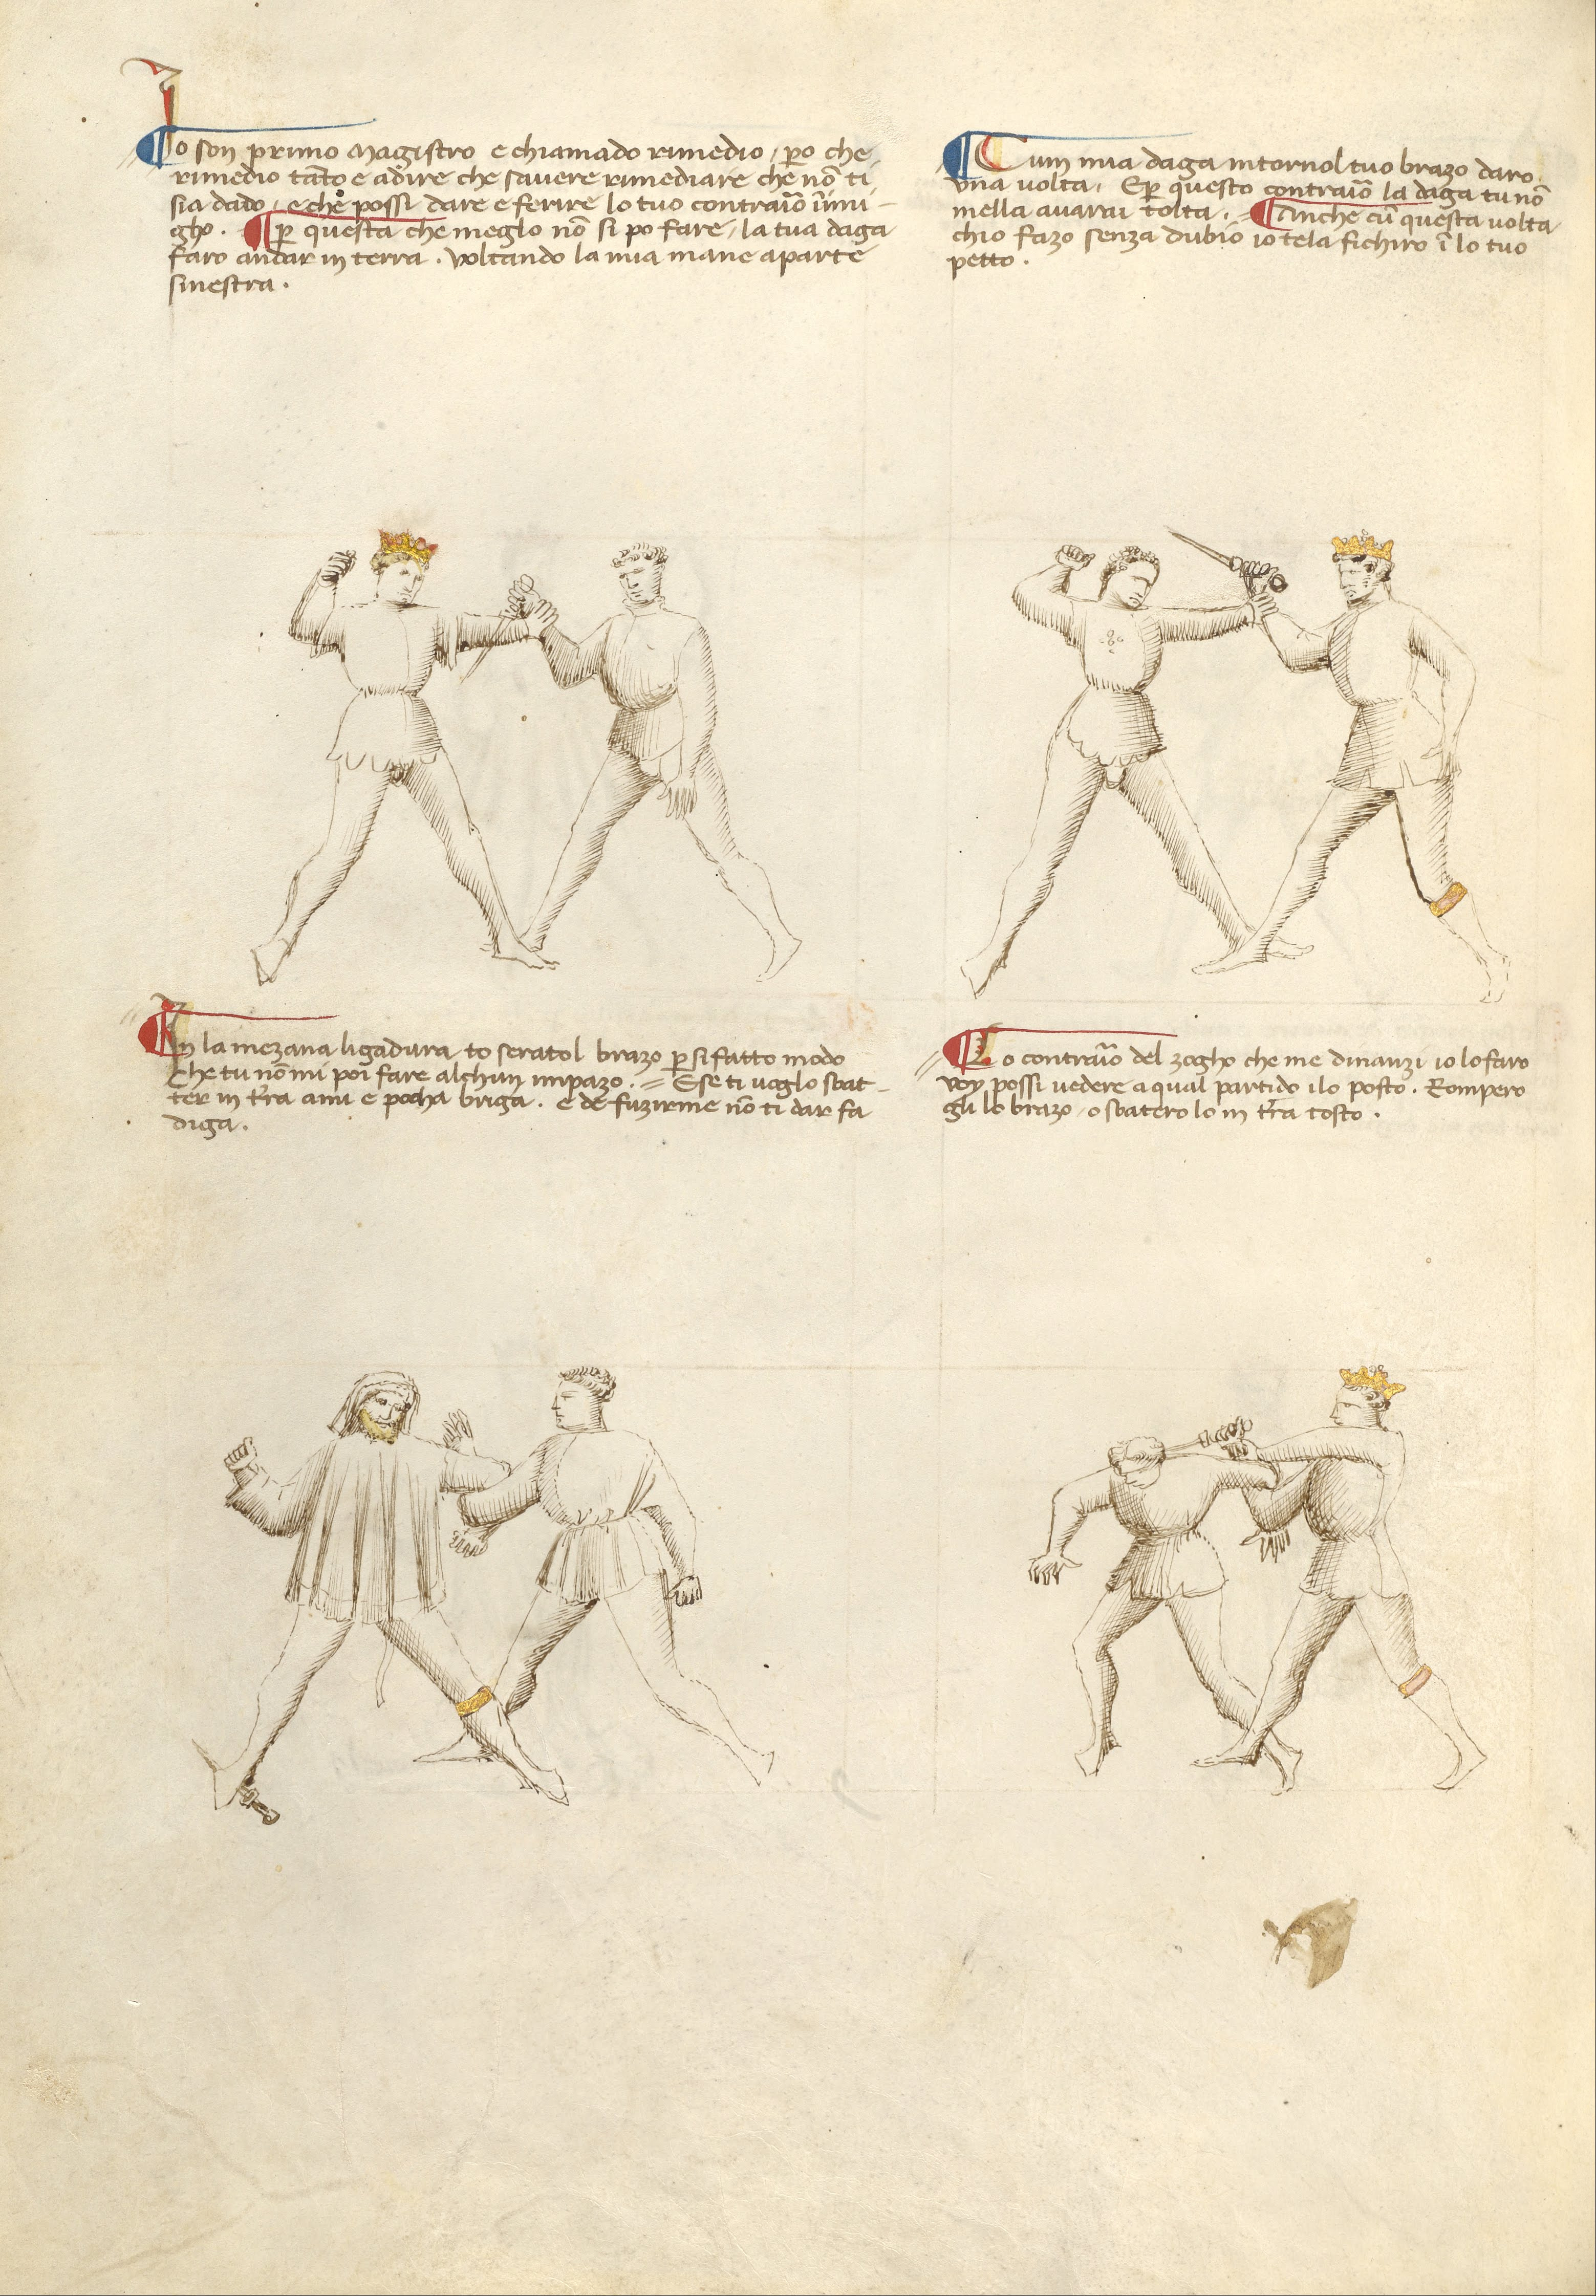 Io son primo Magistro e chiamado rimedio, ꝑo che
rimedio tāto e a dire che savere rimediare che nō ti
sia dado, e che possi dare e ferire lo tuo contraiōo inimi-
gho. ¶ ꝑ questa che meglo nō si po fare, la tua daga
faro andar in terra. voltando la mia mane a parte
sinestra.
Cum mia daga intornol tuo brazo daro
una volta, E ꝑ questo contraiōo la daga tu nō
mella avarai tolta. = ¶ Anche cū questa volta
chio fazo senza dubio io te la fichiro ī lo tuo
petto.
In la mezana ligadura to seratol brazo ꝑ si fatto modo
Che tu nō mi poi fare alchun impazo. = E se ti voglo sbat-
ter in tr̄ra a mi e pocha briga. e de fuzirme nō ti dar fa
diga.
Lo contraīo del zogho che me dinanzi io lo faro
voy possi vedere a qual partido i lo posto. Rompero
gli lo brazo, o sbatero lo in tr̄ra tosto.